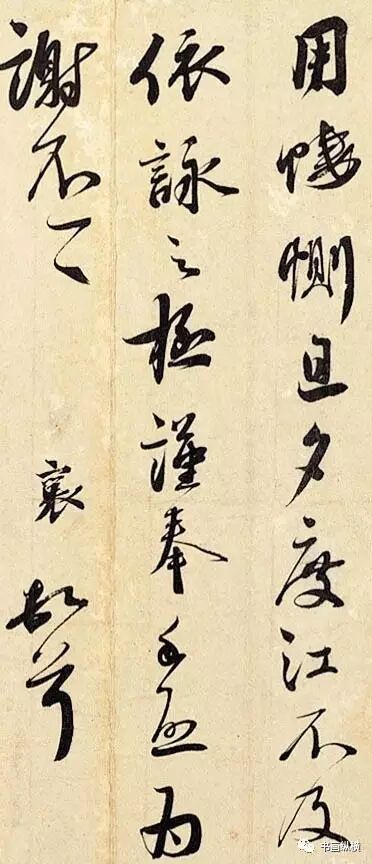 用悽惻旦夕度江不及
依詠之極謹奉手啓為
謝不一一 襄 頓首
书画纵横